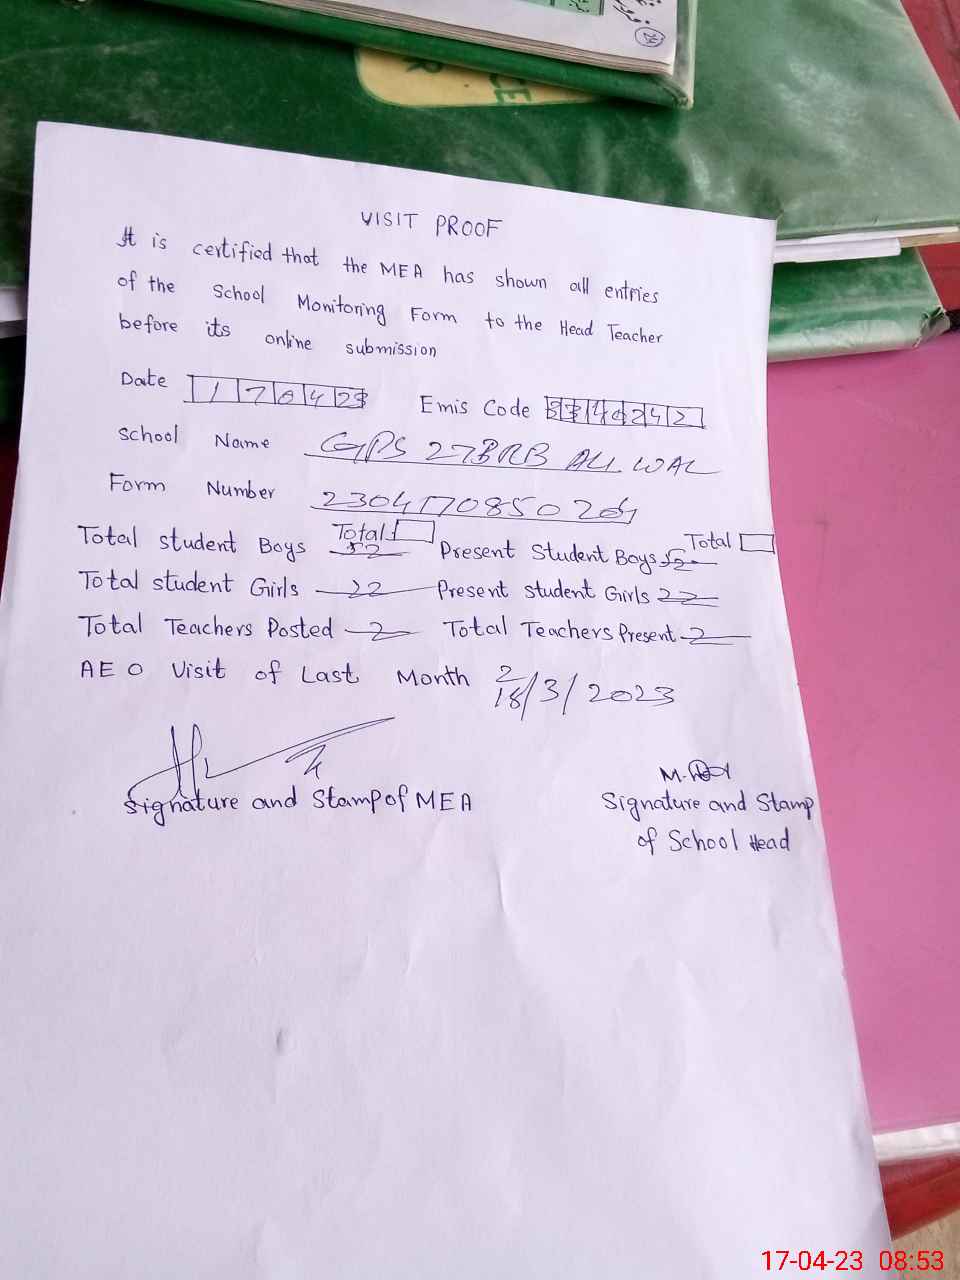 VISIT PROOF
It is certified that the MEA has shown all entries
of the School Monitoring Form to the Head Teacher
before its online submission
Date 170423 Emis Code 33140242
School Name GPS 27BRB ALI WAL
Form Number
Total Total
Total student Boys 52 Present Student Boys 52
Total student Girls 22 Present student Girls 22
Total Teachers Posted 2 Total Teachers Present 2
AEO Visit of Last Month 2
18/3/2023
Signature and Stamp of MEA Signature and Stamp
of School Head
17-04-23 08:53